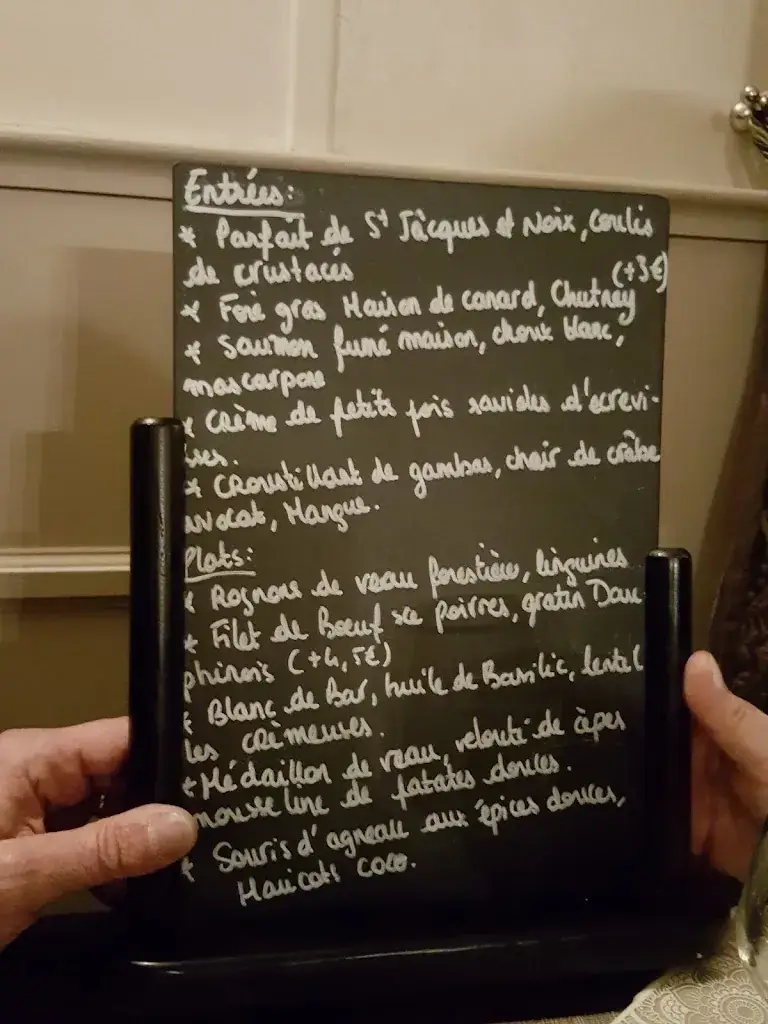 Entrées:
* Parfait de St Jacques et Noix, coulis
de crustacés (+3€)
* Foie gras Maison de canard, Chutney
* Saumon fumé maison, choux blanc,
mascarpone
* Crème de petits pois ravioles d'écrevi-
sses.
* Croustillant de gambas, chair de crabe
avocat, Mangue.
Plats:
* Rognons de veau forestière, linguines
* Filet de Boeuf sce poivres, gratin Dau-
phinois (+4,5€)
* Blanc de Bar, huile de Basilic, lentil
les crèmeuses.
* Médaillon de veau, velouté de cèpes
mousseline de patates douces.
* Souris d'agneau aux épices douces,
Haricots coco.